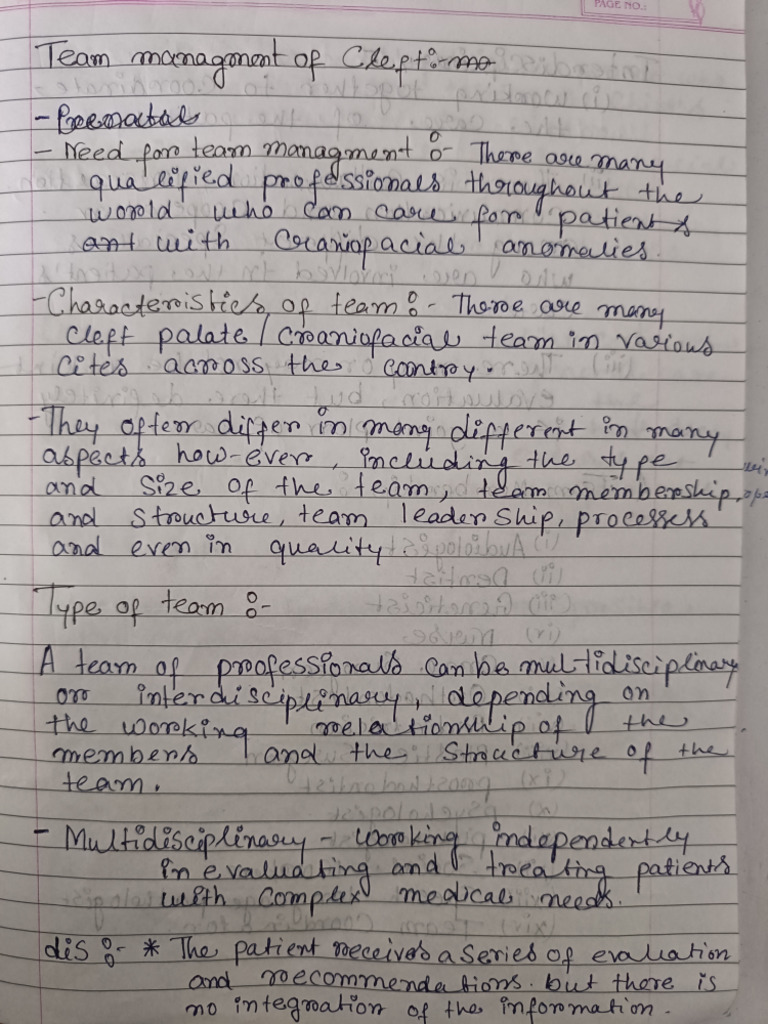 PAGE NO.:
Team managment of Cleft:- mo
- Peenatal
- Need for team managment :- There are many
qualified professionals throughout the
world who can care for patients
ant with Craniofacial anomalies.
- Characteristics of team :- There are many
cleft palate / craniofacial team in various
cites across the contry.
- They often differ in many different in many
aspects how-ever, including the type
and size of the team, team membership,
and structure, team leadership, processess
and even in quality.
Type of team :-
A team of professionals can be multidisciplinary
or interdisciplinary, depending on
the working relationship of the
members and the structure of the
team.
- Multidisciplinary - Working independently
in evaluating and treating patients
with complex medical needs.
dis :- * The patient receives a series of evaluation
and recommendations. but there is
no integration of the information.